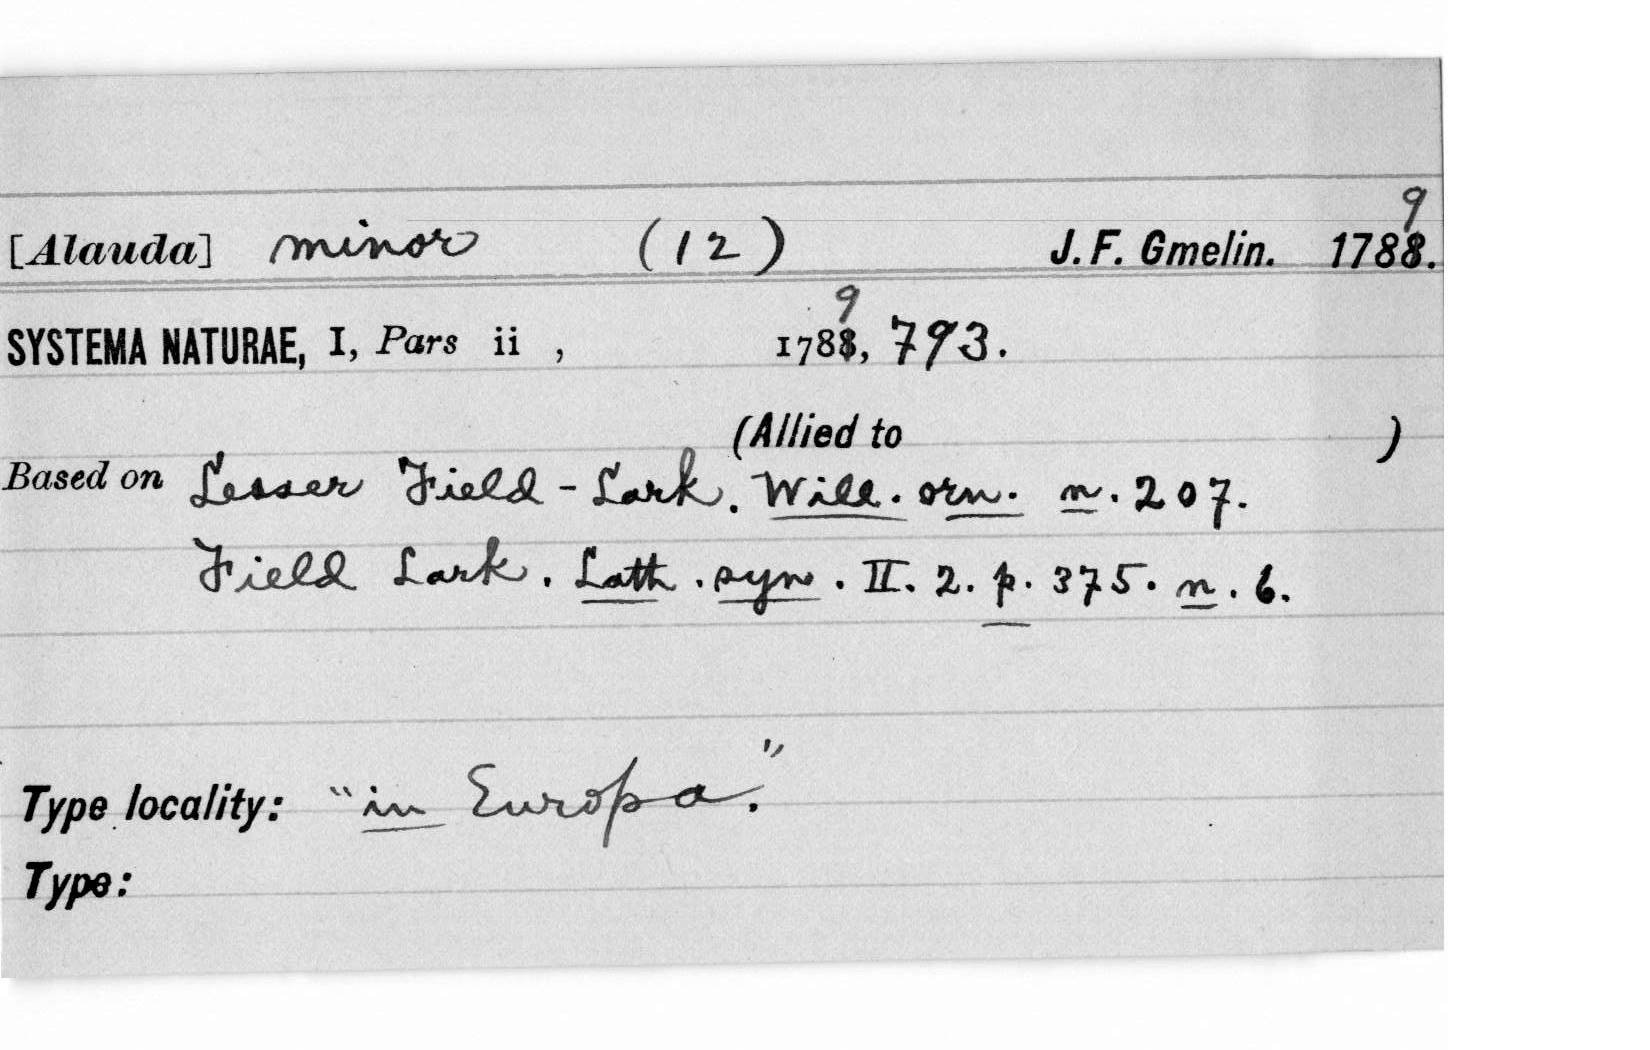 [Alauda] minor (12) J. F. Gmelin. 1789.
SYSTEMA NATURAE, I, Pars ii , 1789, 793.
(Allied to )
Based on Lesser Field-Lark. Will. orn. n. 207.
Field Lark. Lath. syn. II. 2. p. 375. n. 6.
Type locality: "in Europa."
Type: